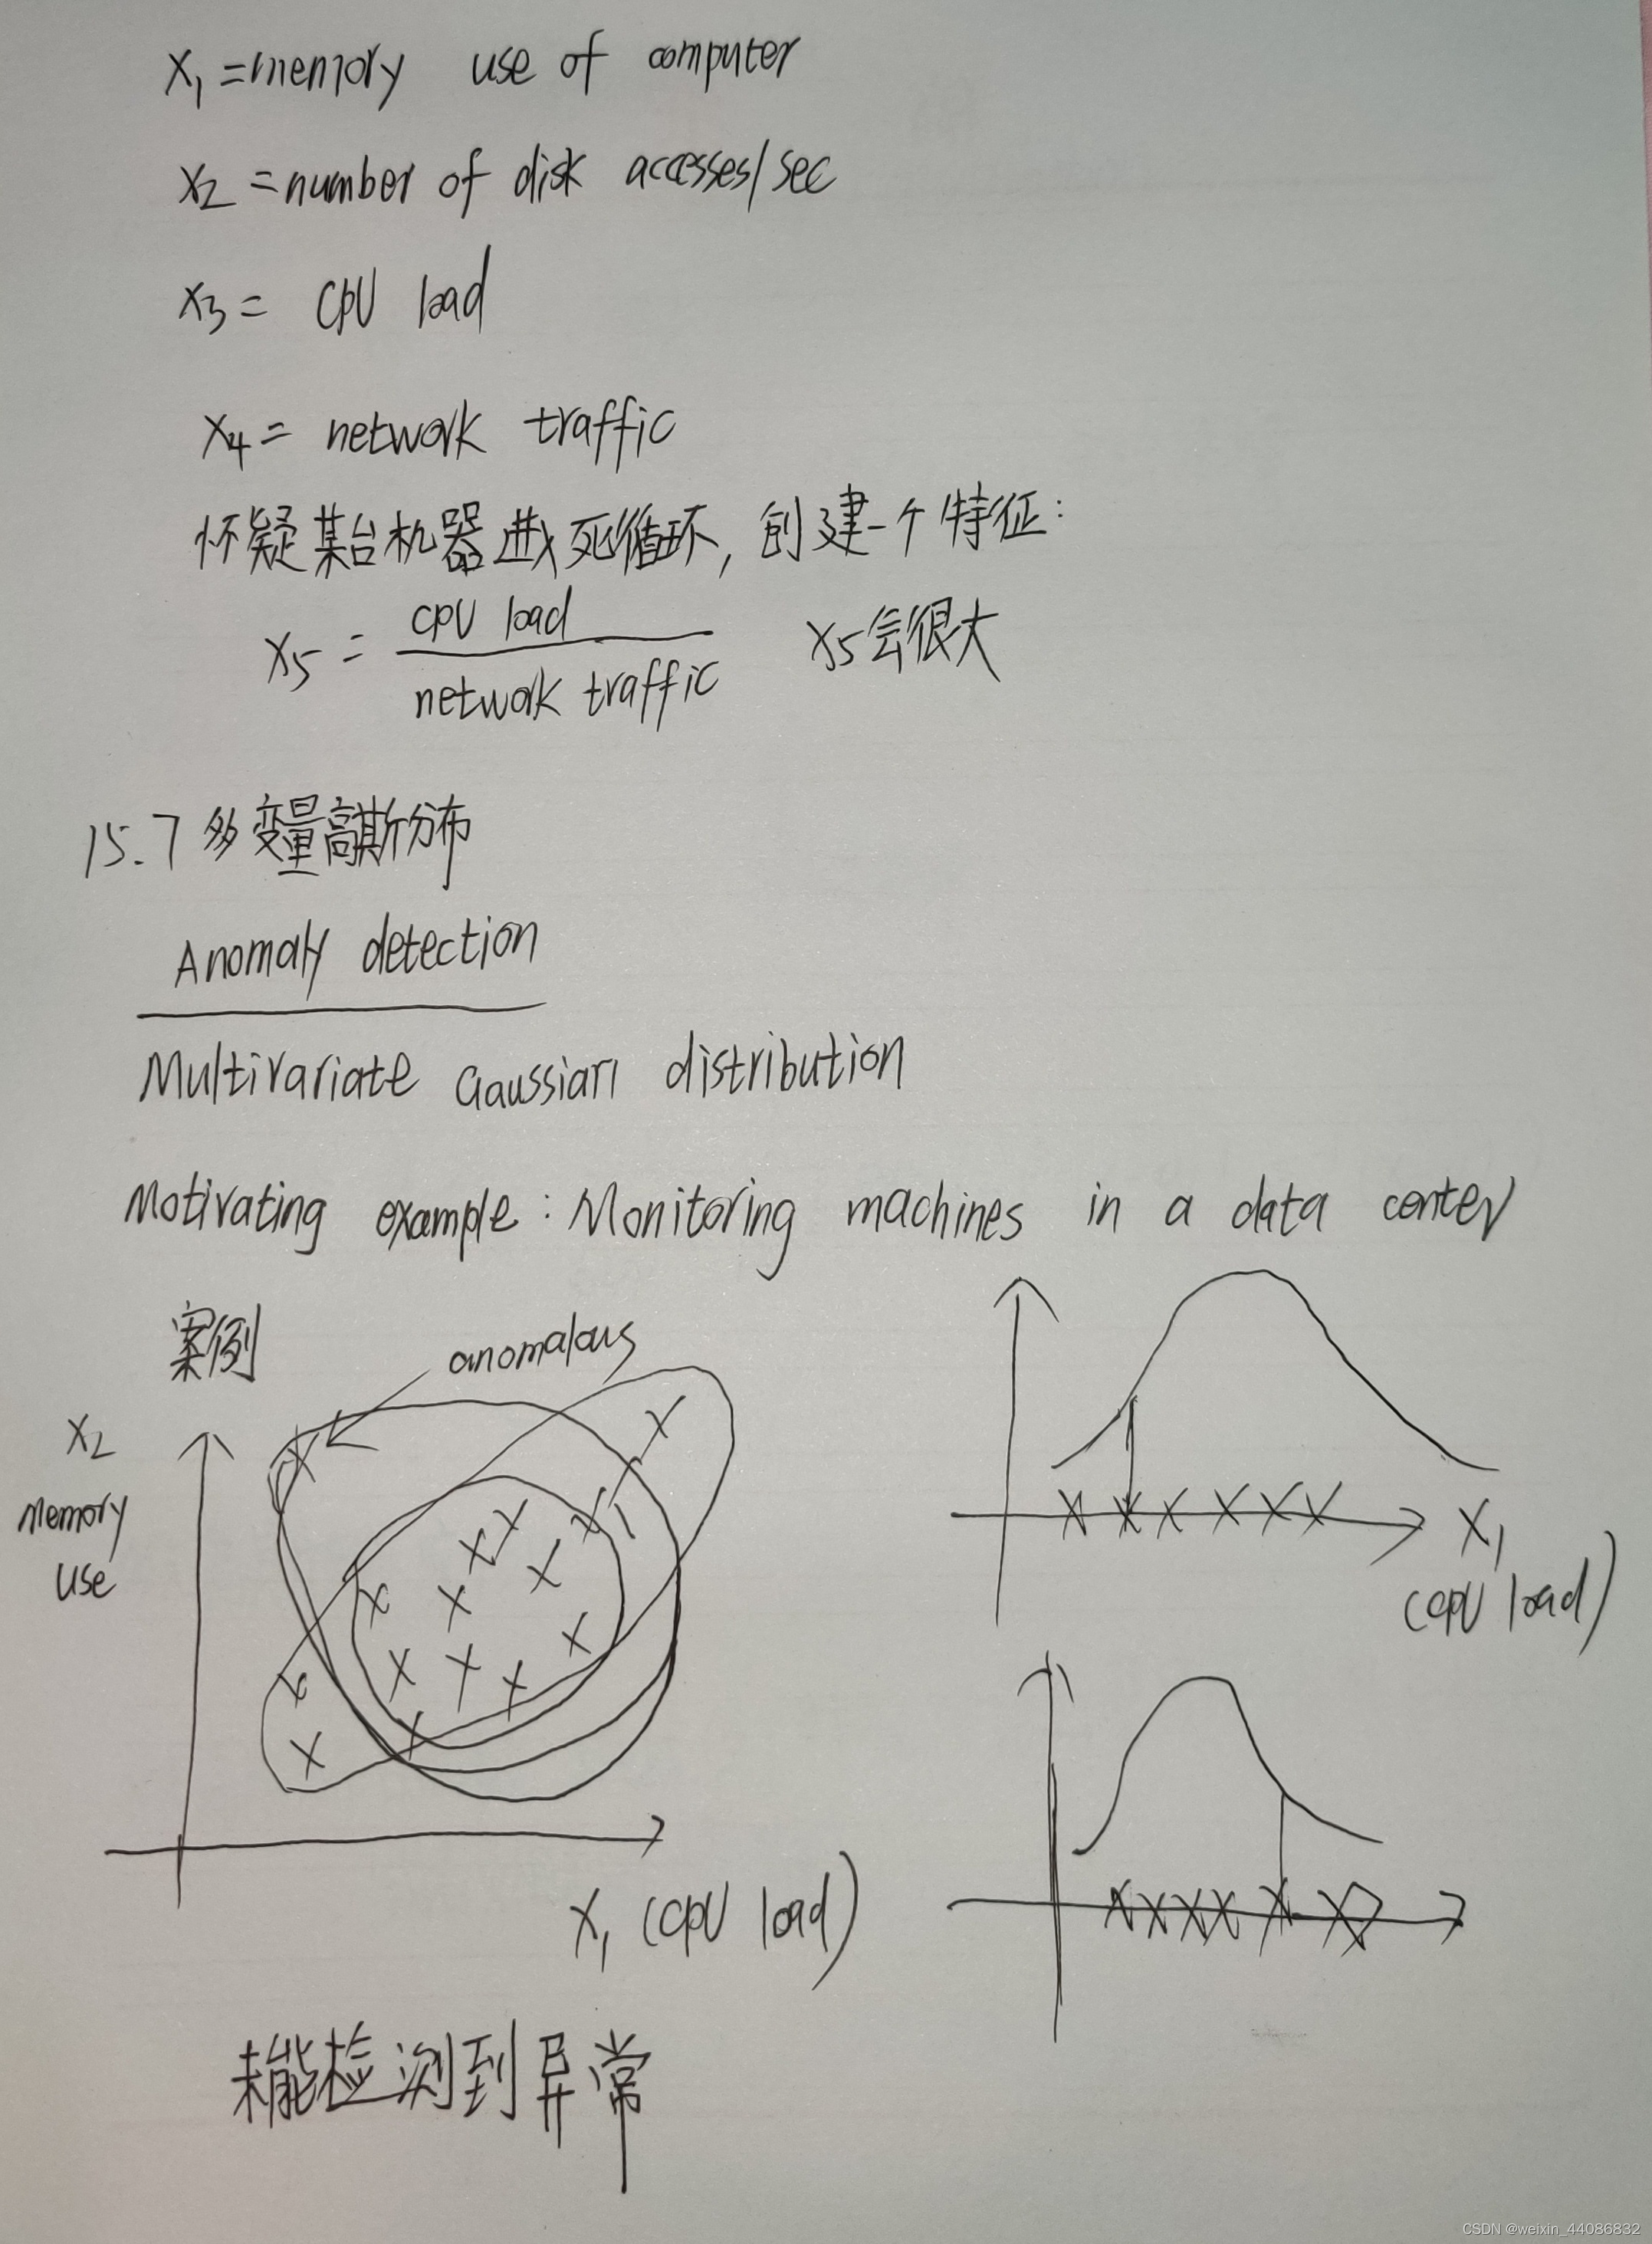 x₁ = memory use of computer
x₂ = number of disk accesses/sec
x₃ = CPU load
x₄ = network traffic
怀疑某台机器进入死循环，创建一个特征：
x₅ = CPU load / network traffic x₅会很大
15.7 多变量高斯分布
Anomaly detection
Multivariate Gaussian distribution
Motivating example: Monitoring machines in a data center
案例
anomalous
x₂
Memory
use
x₁ (CPU load)
x₁
(CPU load)
未能检测到异常
CSDN @weixin_44086832